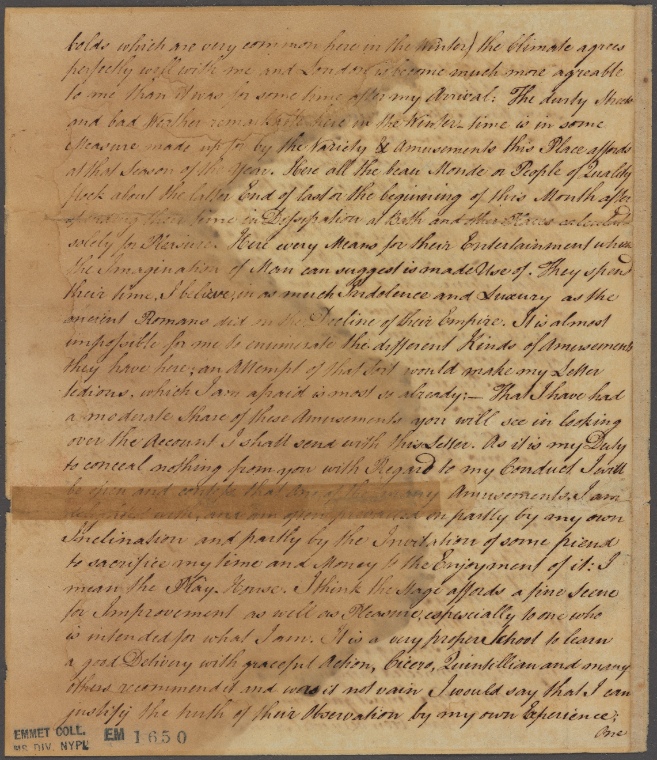 Colds which are very common here in the Winter) the Climate agrees
perfectly well with me and London is become much more agreeable
to me than it was for some time after my Arrival: The dusty Streets
and bad Weather remarkable here in the Winter time is in some
Measure made up for by the Variety of Amusements this Place affords
at that Season of the Year. Here all the beau Monde or People of Quality
flock about the latter End of last or the beginning of this Month after
spending their time in Dissipation at Bath and other Places calculated
solely for Pleasure. Here every Means for their Entertainment which
the Imagination of Man can suggest is made Use of. They spend
their time, I believe, in as much Indolence and Luxury as the
ancient Romans did in the Decline of their Empire. It is almost
impossible for me to enumerate the different Kinds of Amusements
they have here; an Attempt of that Sort would make my Letter
tedious, which I am afraid is most so already:— That I have had
a moderate Share of these Amusements you will see in looking
over the Account I shall send with this Letter. As it is my Duty
to conceal nothing from you with Regard to my Conduct I will
be open and confess that one of the many Amusements I am
on partly by my own
Inclination and partly by the Invitation of some friend
to sacrifice my time and Money to the Enjoyment of it: I
mean the Play House. I think the Stage affords a fine Scene
for Improvement as well as Pleasure, especially to one who
is intended for what I am. It is a very proper School to learn
a good Delivery with graceful Action, Cicero, Quinctillian and many
others recommend it and was it not vain I would say that I can
justify the truth of their Observation by my own Experience;
One
EMMET COLL.
MS. DIV. NYPL
EM 1650